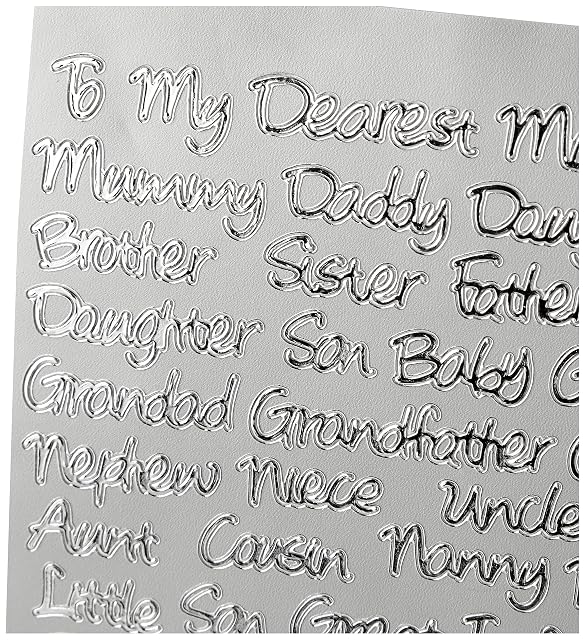 To My Dearest
Mummy Daddy
Brother Sister Father
Daughter Son Baby
Grandad Grandfather
Nephew Niece Uncle
Aunt Cousin Nanny
Little Son Great